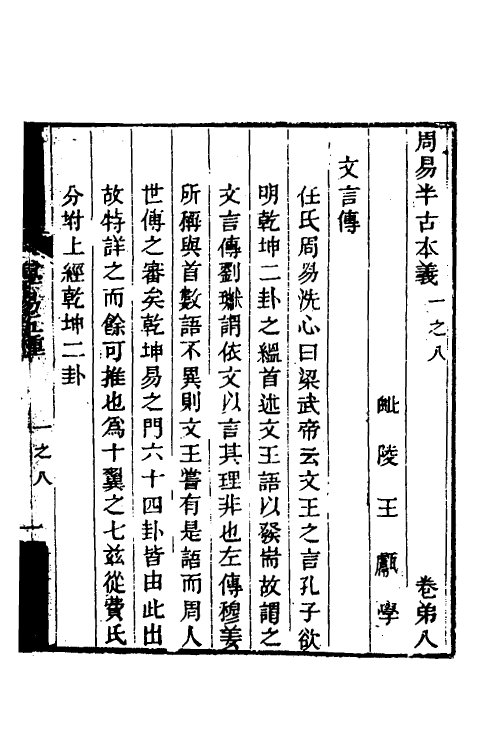 周易半古本義一之八　卷弟八
毗陵王　學
文言傳
任氏周易洗心曰梁武帝云文王之言孔子欲
明乾坤二卦之緼首述文王語以發耑故謂之
文言傳劉瓛謂依文以言其理非也左傳穆姜
所稱與首數語不異則文王嘗有是語而周人
世傳之審矣乾坤易之門六十四卦皆由此出
故特詳之而餘可推也為十翼之七茲從費氏
分坿上經乾坤二卦
一之八